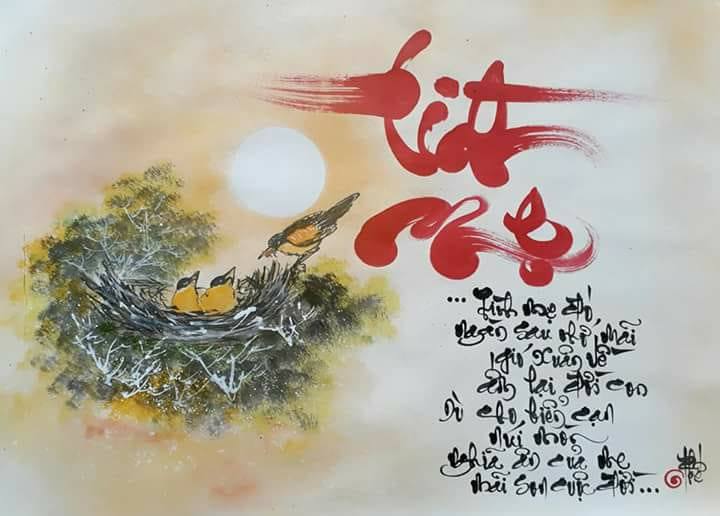 Tình
Mẹ
... Tình mẹ đó
ngàn sau nhớ mãi
gió xuân về
ấm lại đời con
Dù cho biển cạn
núi mòn
nghĩa ân của mẹ
mãi son cuộc đời...